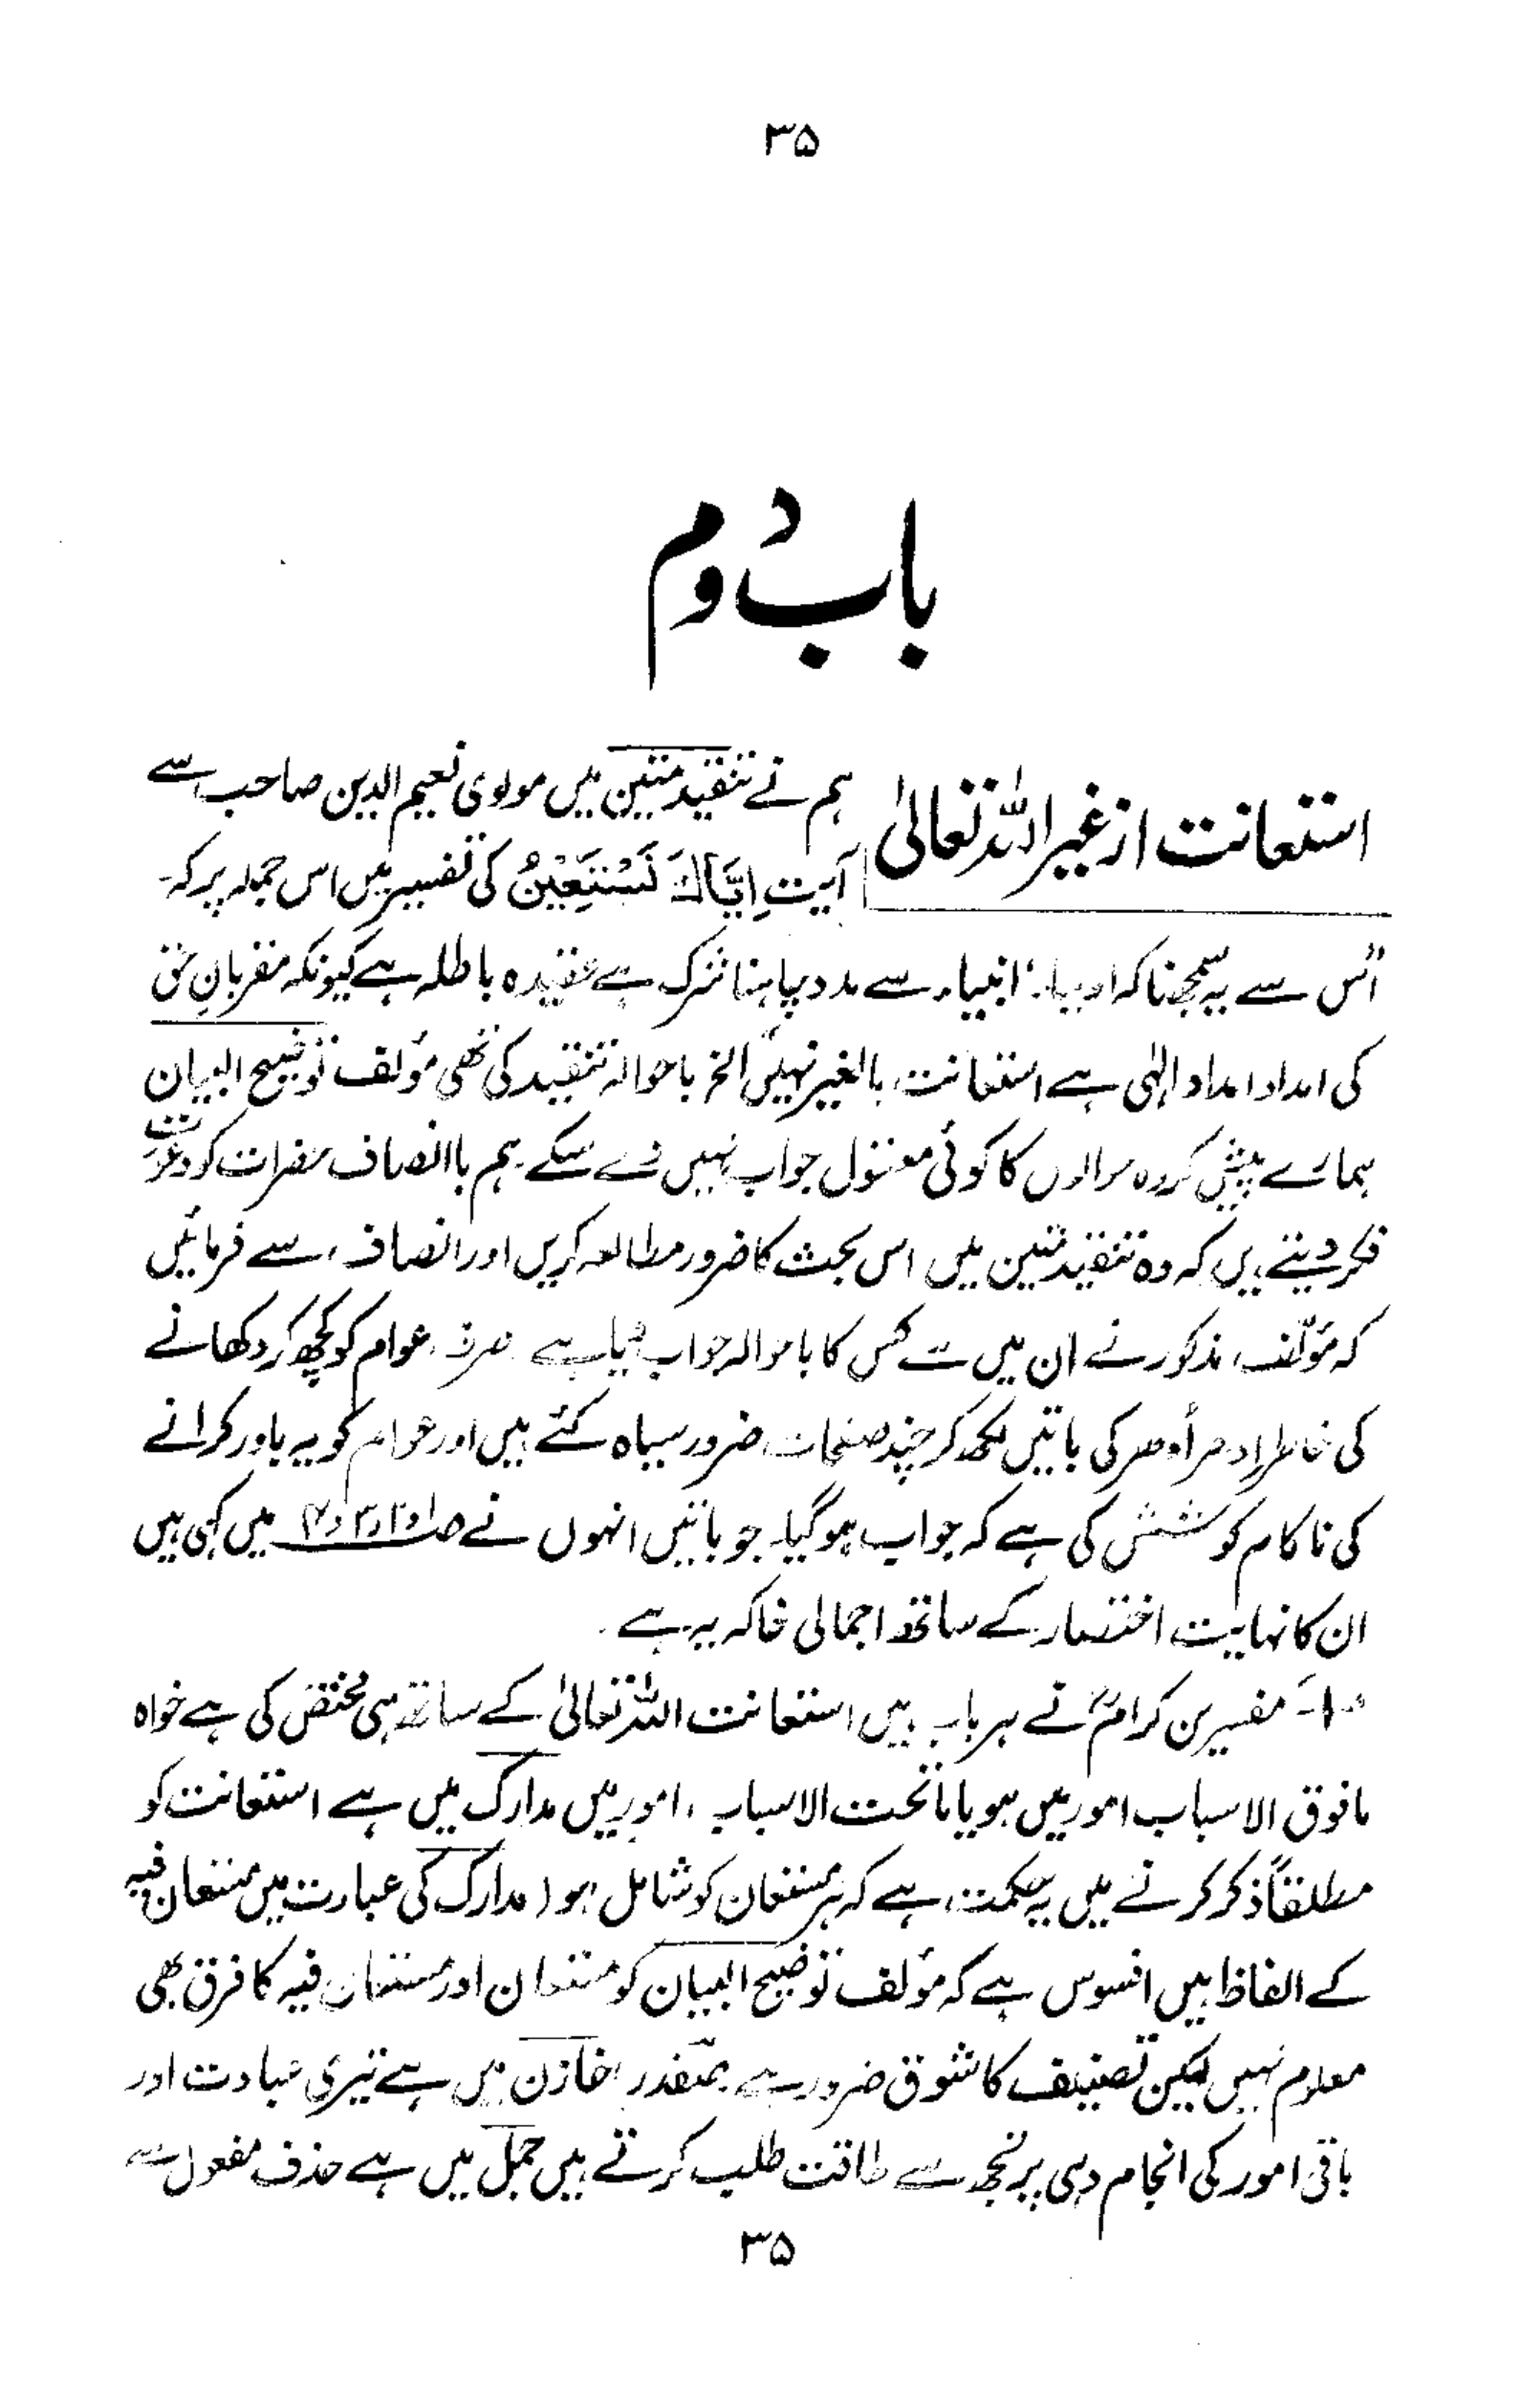 ۳۵
باب دوم
استعانت از غیر اللہ تعالیٰ
ہم نے تنقید متین میں مولوی نعیم الدین صاحب سے
آیتِ اِیَّاكَ نَسْتَعِیْنُ کی تفسیر میں اس جملہ پر کہ۔
"اس سے یہ سمجھنا کہ اولیاء انبیاء سے مدد چاہنا شرک ہے عقیدہ باطلہ ہے کیونکہ مقربانِ حق
کی امداد امداد الٰہی ہے استعانت بالغیر نہیں" الخ باحوالہ تنقید کی تھی مؤلف توضیح البیان
ہمارے پیش کردہ سوالوں کا کوئی معقول جواب نہیں دے سکے ہم باانصاف حضرات کو دعوت
فکر دیتے ہیں کہ وہ تنقید متین میں اس بحث کا ضرور مطالعہ کریں اور انصاف سے فرمائیں
کہ مؤلف مذکور نے ان میں سے کس کا باحوالہ جواب دیا ہے صرف عوام کو کچھ کر دکھانے
کی خاطر ادھر اُدھر کی باتیں لکھ کر چند صفحات ضرور سیاہ کئے ہیں اور عوام کو یہ باور کرانے
کی ناکام کوشش کی ہے کہ جواب ہو گیا۔ جو باتیں انہوں نے میں کہی ہیں
ان کا نہایت اختصار کے ساتھ اجمالی خاکہ یہ ہے۔
۱۔ مفسرین کرامؒ نے ہر باب میں استعانت اللہ تعالیٰ کے ساتھ ہی مختص کی ہے خواہ
مافوق الاسباب امور میں ہو یا ماتحت الاسباب امور میں مدارک میں ہے استعانت کو
مطلقاً ذکر کرنے میں یہ حکمت ہے کہ ہر مستعان کو شامل ہو (مدارک کی عبارت میں مستعان فیہ
کے الفاظ ہیں افسوس ہے کہ مؤلف توضیح البیان کو مستعان اور مستعان فیہ کا فرق بھی
معلوم نہیں لیکن تصنیف کا شوق ضرور ہے۔ صفدر) خازن میں ہے تیری عبادت اور
باقی امور کی انجام دہی پر تجھ سے طاقت طلب کرتے ہیں جمل میں ہے حذف مفعول سے
۳۵